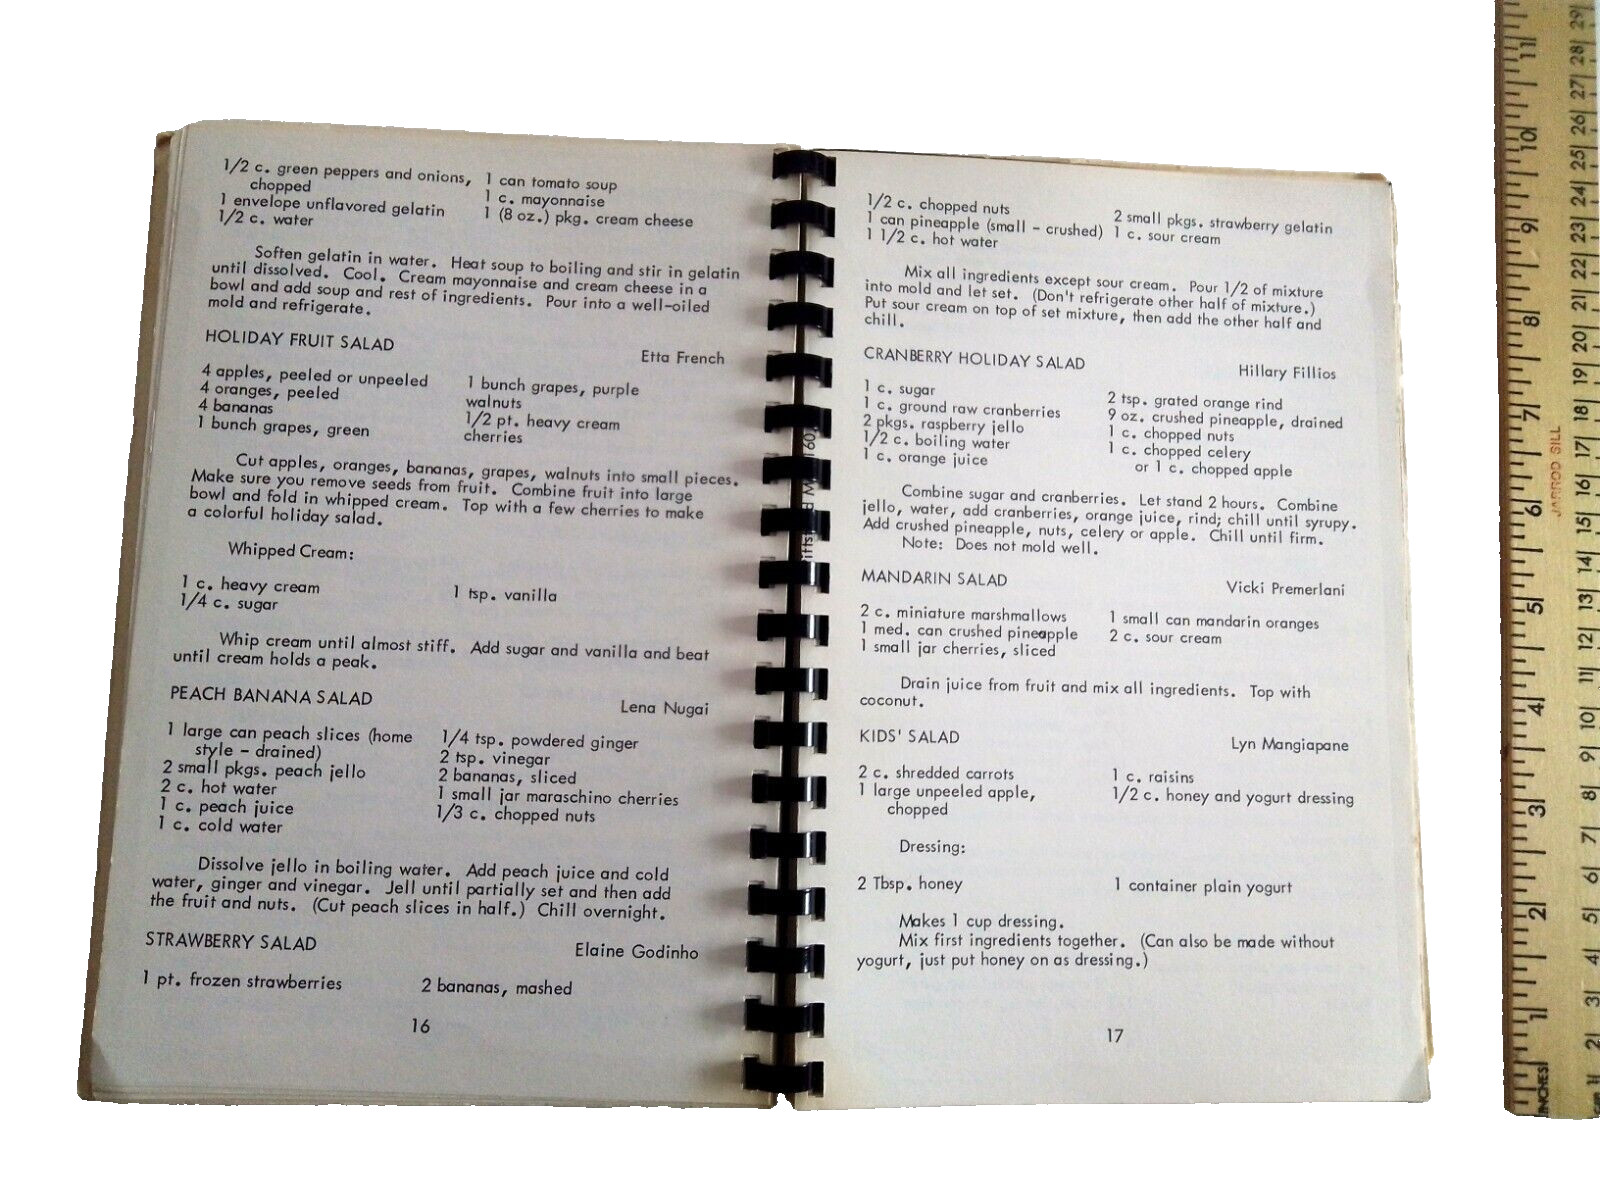 1/2 c. green peppers and onions, chopped
1 envelope unflavored gelatin
1/2 c. water
1 can tomato soup
1 c. mayonnaise
1 (8 oz.) pkg. cream cheese
Soften gelatin in water. Heat soup to boiling and stir in gelatin
until dissolved. Cool. Cream mayonnaise and cream cheese in a
bowl and add soup and rest of ingredients. Pour into a well-oiled
mold and refrigerate.
HOLIDAY FRUIT SALAD
Etta French
4 apples, peeled or unpeeled
4 oranges, peeled
4 bananas
1 bunch grapes, green
1 bunch grapes, purple
walnuts
1/2 pt. heavy cream
cherries
Cut apples, oranges, bananas, grapes, walnuts into small pieces.
Make sure you remove seeds from fruit. Combine fruit into large
bowl and fold in whipped cream. Top with a few cherries to make
a colorful holiday salad.
Whipped Cream:
1 c. heavy cream
1/4 c. sugar
1 tsp. vanilla
Whip cream until almost stiff. Add sugar and vanilla and beat
until cream holds a peak.
PEACH BANANA SALAD
Lena Nugai
1 large can peach slices (home
style - drained)
2 small pkgs. peach jello
2 c. hot water
1 c. peach juice
1 c. cold water
1/4 tsp. powdered ginger
2 tsp. vinegar
2 bananas, sliced
1 small jar maraschino cherries
1/3 c. chopped nuts
Dissolve jello in boiling water. Add peach juice and cold
water, ginger and vinegar. Jell until partially set and then add
the fruit and nuts. (Cut peach slices in half.) Chill overnight.
STRAWBERRY SALAD
Elaine Godinho
1 pt. frozen strawberries
2 bananas, mashed
16
1/2 c. chopped nuts
1 can pineapple (small - crushed)
1 1/2 c. hot water
2 small pkgs. strawberry gelatin
1 c. sour cream
Mix all ingredients except sour cream. Pour 1/2 of mixture
into mold and let set. (Don't refrigerate other half of mixture.)
Put sour cream on top of set mixture, then add the other half and
chill.
CRANBERRY HOLIDAY SALAD
Hillary Fillios
1 c. sugar
1 c. ground raw cranberries
2 pkgs. raspberry jello
1/2 c. boiling water
1 c. orange juice
2 tsp. grated orange rind
9 oz. crushed pineapple, drained
1 c. chopped nuts
1 c. chopped celery
or 1 c. chopped apple
Combine sugar and cranberries. Let stand 2 hours. Combine
jello, water, add cranberries, orange juice, rind; chill until syrupy.
Add crushed pineapple, nuts, celery or apple. Chill until firm.
Note: Does not mold well.
MANDARIN SALAD
Vicki Premerlani
2 c. miniature marshmallows
1 med. can crushed pineapple
1 small jar cherries, sliced
1 small can mandarin oranges
2 c. sour cream
Drain juice from fruit and mix all ingredients. Top with
coconut.
KIDS' SALAD
Lyn Mangiapane
2 c. shredded carrots
1 large unpeeled apple,
chopped
1 c. raisins
1/2 c. honey and yogurt dressing
Dressing:
2 Tbsp. honey
1 container plain yogurt
Makes 1 cup dressing.
Mix first ingredients together. (Can also be made without
yogurt, just put honey on as dressing.)
17
INCHES 1 2 3 4 5 6 7 8 9 10 11
JARROD SILL
1 2 3 4 5 6 7 8 9 10 11 12 13 14 15 16 17 18 19 20 21 22 23 24 25 26 27 28 29